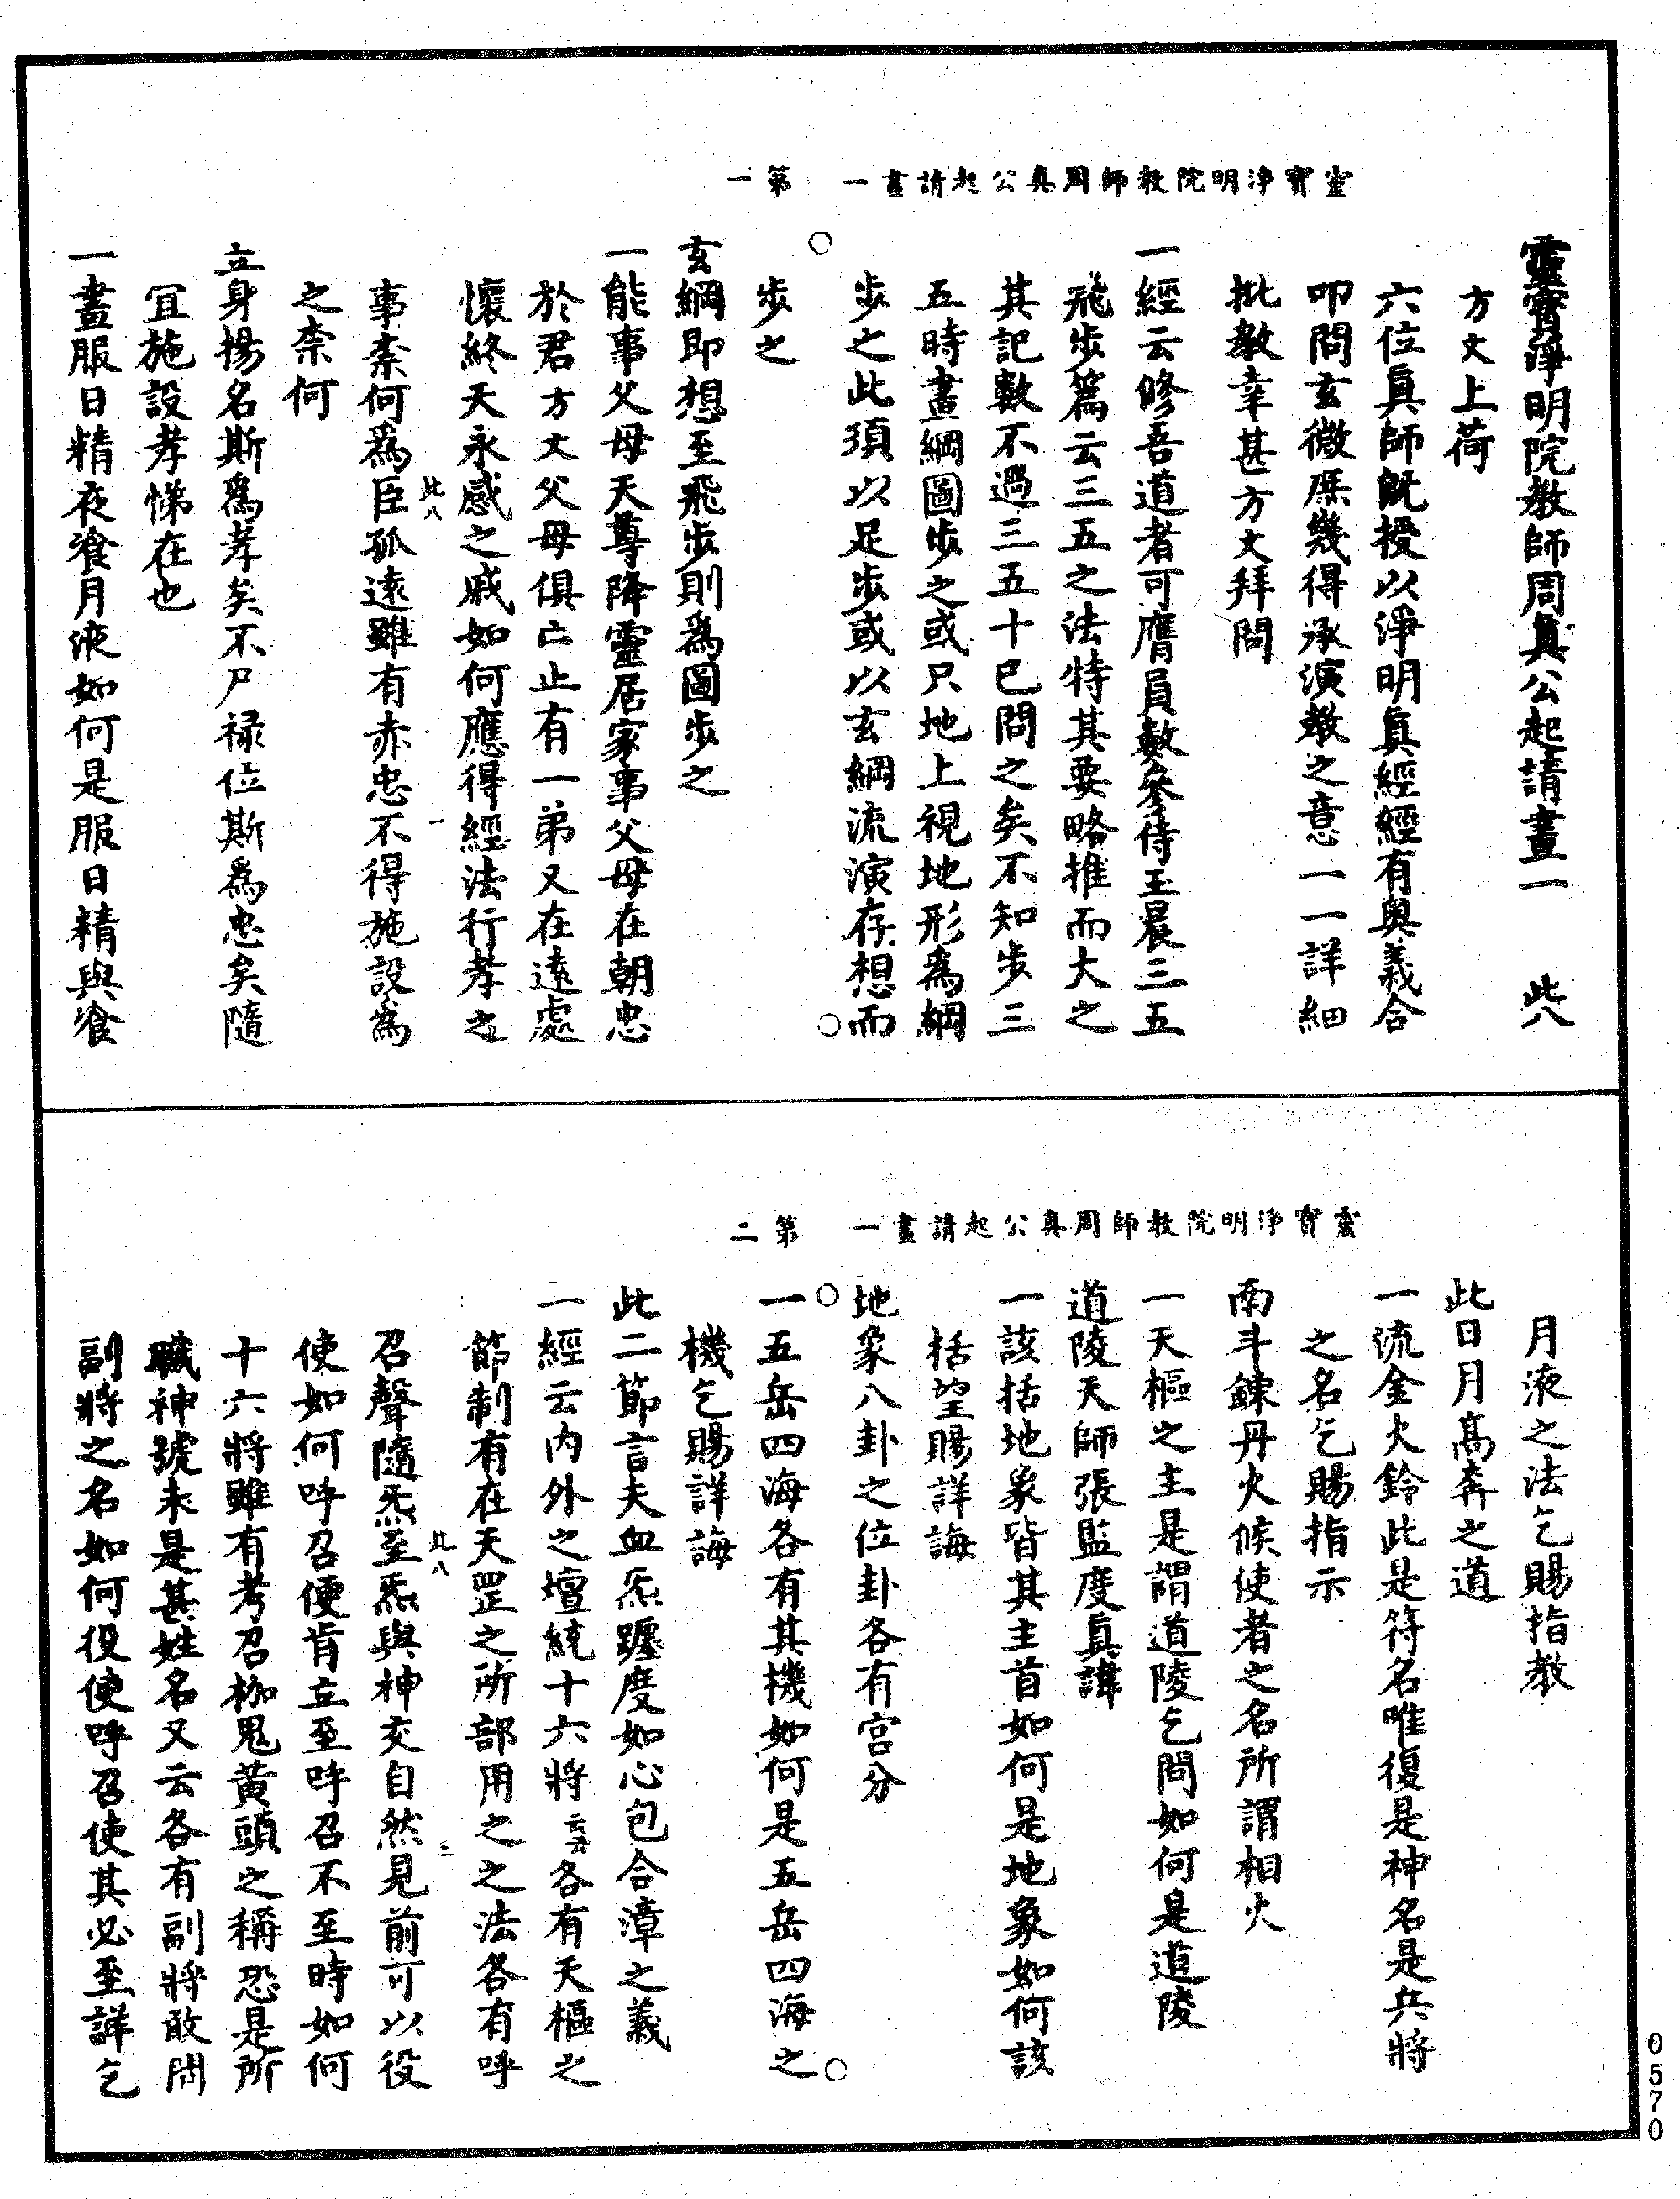 靈寶淨明院教師周真公起請畫一　第一
靈寶淨明院教師周真公起請畫一　此八
方丈上荷
六位真師旣授以淨明真經經有奧義合
叩問玄微庶幾得承演教之意一一詳細
批教幸甚方丈拜問
一經云修吾道者可膺員數參侍玉晨三五
飛步篇云三五之法特其要略推而大之
其記數不過三五十已問之矣不知步三
五時畫綱圖步之或只地上視地形為綱
步之此須以足步或以玄綱流演存想而
步之
玄綱即想至飛步則為圖步之
一能事父母天尊降靈居家事父母在朝忠
於君方丈父母俱亡止有一弟又在遠處
懷終天永感之戚如何應得經法行孝之
此八　一
事柰何為臣孤遠雖有赤忠不得施設為
之柰何
立身揚名斯為孝矣不尸祿位斯為忠矣隨
宜施設孝悌在也
一晝服日精夜飡月液如何是服日精與飡
靈寶淨明院教師周真公起請畫一　第二
月液之法乞賜指教
此日月高奔之道
一流金火鈴此是符名唯復是神名是兵將
之名乞賜指示
南斗鍊丹火候使者之名所謂相火
一天樞之主是謂道陵乞問如何是道陵
道陵天師張監度真諱
一該括地象皆其主首如何是地象如何該
括望賜詳誨
地象八卦之位卦各有宮分
一五岳四海各有其機如何是五岳四海之
機乞賜詳誨
此二節言夫血炁躔度如心包合漳之義
一經云內外之壇統十六將云云各有天樞之
節制有在天罡之所部用之之法各有呼
此八　二
召聲隨炁至炁與神交自然見前可以役
使如何呼召便肯立至呼召不至時如何
十六將雖有考召枷鬼黃頭之稱恐是所
職神號未是甚姓名又云各有副將敢問
副將之名如何役使呼召使其必至詳乞
0570